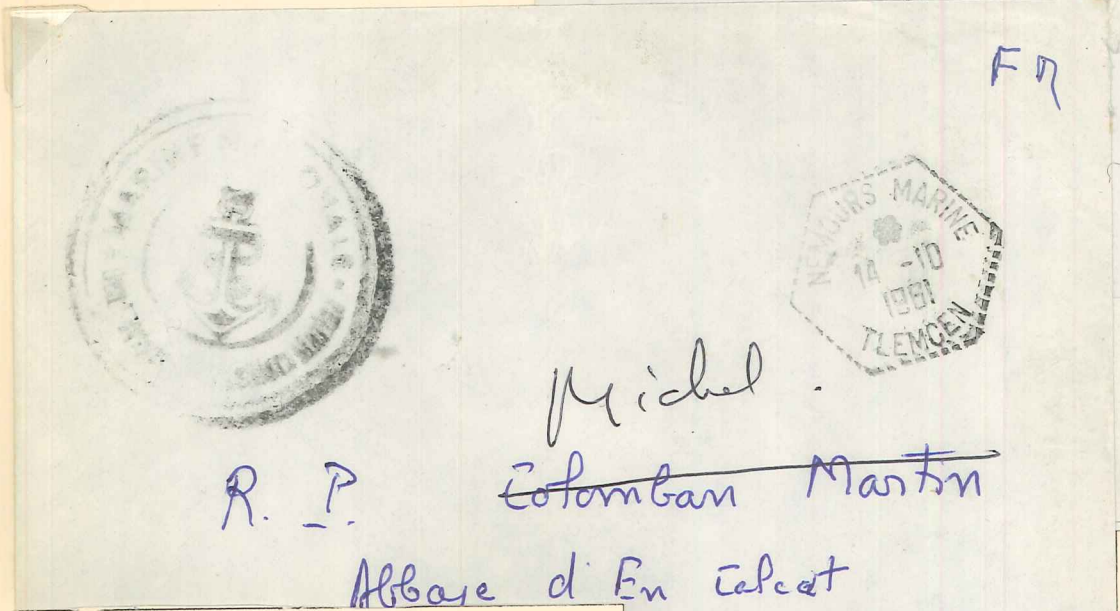 FM
NEMOURS MARINE
14 -10
1961
TLEMCEN
Michel.
R. P. Colomban Martin
Abbaye d'En Calcat